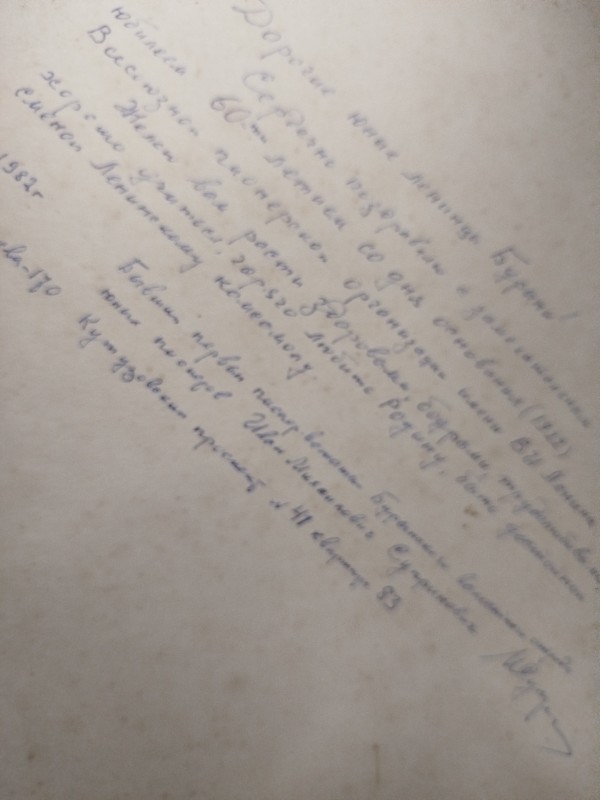 Дорогие юные ленинцы Бурыни!
Сердечно поздравляю с замечательным
юбилеем 60-ти летием со дня основания (1922)
Всесоюзной пионерской организации имени В.И. Ленина
Желаю вам расти здоровыми, бодрыми,
хорошо учиться, горячо любить Родину, быть достойной
сменой Ленинскому комсомолу.
Бывший первый пионервожатый
1982г юных пионеров Иван Михайлович
Москва-170 Кутузовский проспект д 41 квартира 83